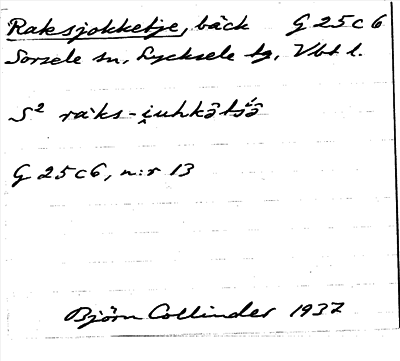 Raksjokketje, bäck G 25 c 6
Sorsele sn, Lycksele lg, Vbt l.
S² räks-i̯uhkə̑tš́ə̑
G 25 c 6, n:r 13
Björn Collinder 1937